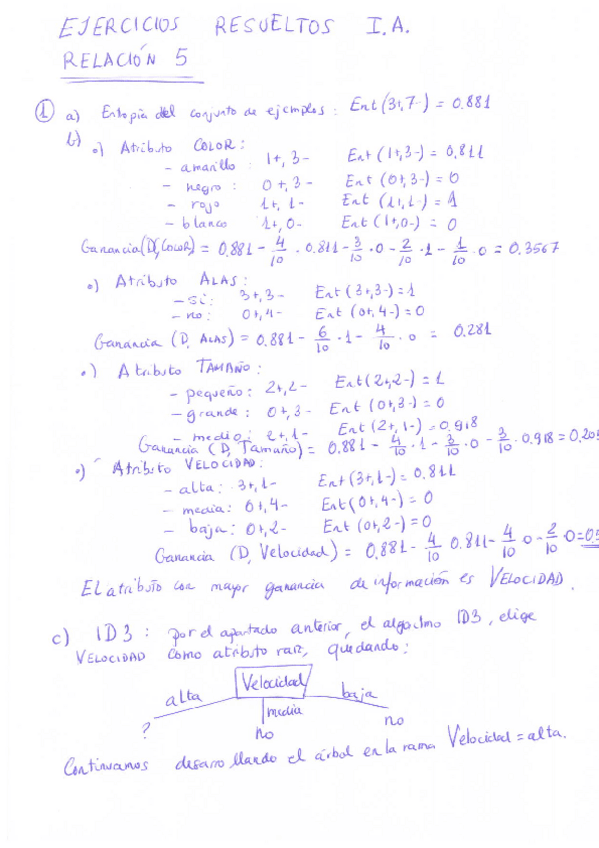 EJERCICIOS RESUELTOS I.A.
RELACIÓN 5
① a) Entropía del conjunto de ejemplos: Ent(3+,7-) = 0.881
b) o) Atributo COLOR:
- amarillo: 1+, 3- Ent(1+,3-) = 0,811
- negro: 0+, 3- Ent(0+,3-) = 0
- rojo 1+, 1- Ent(1+,1-) = 1
- blanco 1+, 0- Ent(1+,0-) = 0
Ganancia(D,COLOR) = 0.881 - 4/10 · 0.811 - 3/10 · 0 - 2/10 · 1 - 1/10 · 0 = 0.3567
o) Atributo ALAS:
- si: 3+, 3- Ent(3+,3-) = 1
- no: 0+, 4- Ent(0+,4-) = 0
Ganancia (D, ALAS) = 0.881 - 6/10 · 1 - 4/10 · 0 = 0.281
o) Atributo TAMAÑO:
- pequeño: 2+, 2- Ent(2+,2-) = 1
- grande: 0+, 3- Ent(0+,3-) = 0
- medio: 2+, 1- Ent(2+,1-) = 0.918
Ganancia (D, Tamaño) = 0.881 - 4/10 · 1 - 3/10 · 0 - 3/10 · 0.918 = 0.205
o) Atributo VELOCIDAD:
- alta: 3+, 1- Ent(3+,1-) = 0.811
- media: 0+, 4- Ent(0+,4-) = 0
- baja: 0+, 2- Ent(0+,2-) = 0
Ganancia (D, Velocidad) = 0.881 - 4/10 0.811 - 4/10 0 - 2/10 0 =
El atributo con mayor ganancia de información es VELOCIDAD.
c) ID3: por el apartado anterior, el algoritmo ID3, elige
VELOCIDAD como atributo raíz, quedando:
Velocidad
alta media baja
? no no
Continuamos desarrollando el árbol en la rama Velocidad = alta.